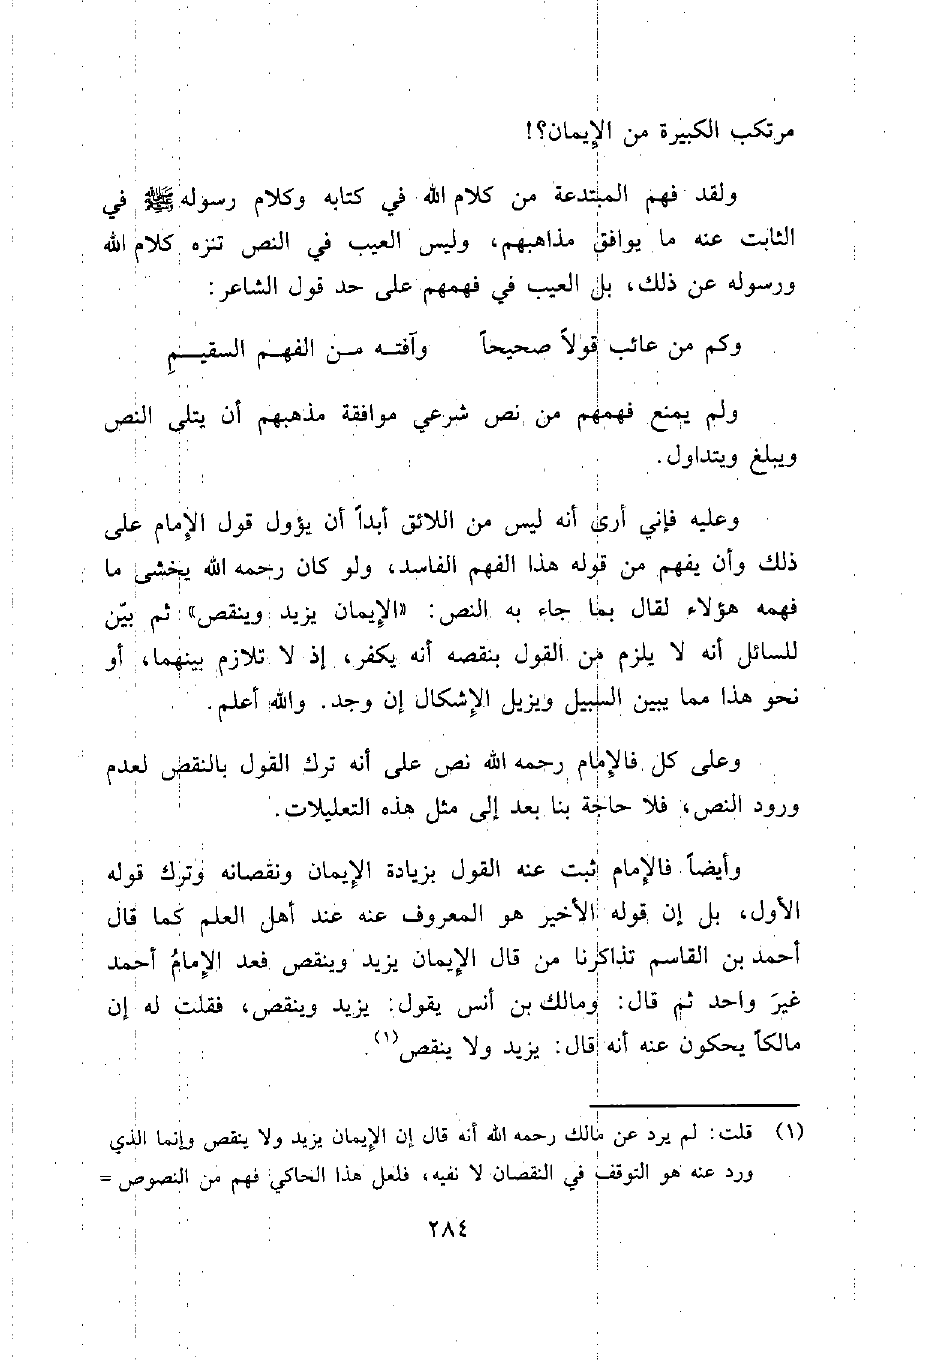 مرتكب الكبيرة من الإيمان؟!
ولقد فهم المبتدعة من كلام الله في كتابه وكلام رسوله ﷺ في
الثابت عنه ما يوافق مذاهبهم، وليس العيب في النص تنزه كلام الله
ورسوله عن ذلك، بل العيب في فهمهم على حد قول الشاعر:
وكم من عائب قولاً صحيحاً وآفتـــه مـــن الفهـــم السقيـــمِ
ولم يمنع فهمهم من نص شرعي موافقة مذهبهم أن يتلى النص
ويبلغ ويتداول.
وعليه فإني أرى أنه ليس من اللائق أبداً أن يؤول قول الإمام على
ذلك وأن يفهم من قوله هذا الفهم الفاسد، ولو كان رحمه الله يخشى ما
فهمه هؤلاء لقال بما جاء به النص: «الإيمان يزيد وينقص» ثم بيّن
للسائل أنه لا يلزم من القول بنقصه أنه يكفر، إذ لا تلازم بينهما، أو
نحو هذا مما يبين السبيل ويزيل الإشكال إن وجد. والله أعلم.
وعلى كل فالإمام رحمه الله نص على أنه ترك القول بالنقص لعدم
ورود النص، فلا حاجة بنا بعد إلى مثل هذه التعليلات.
وأيضاً فالإمام ثبت عنه القول بزيادة الإيمان ونقصانه وترك قوله
الأول، بل إن قوله الأخير هو المعروف عنه عند أهل العلم كما قال
أحمد بن القاسم تذاكرنا من قال الإيمان يزيد وينقص فعد الإمامُ أحمد
غيرَ واحد ثم قال: ومالك بن أنس يقول: يزيد وينقص، فقلت له إن
مالكاً يحكون عنه أنه قال: يزيد ولا ينقص(١).
(١) قلت: لم يرد عن مالك رحمه الله أنه قال إن الإيمان يزيد ولا ينقص وإنما الذي
ورد عنه هو التوقف في النقصان لا نفيه، فلعل هذا الحاكي فهم من النصوص =
٢٨٤